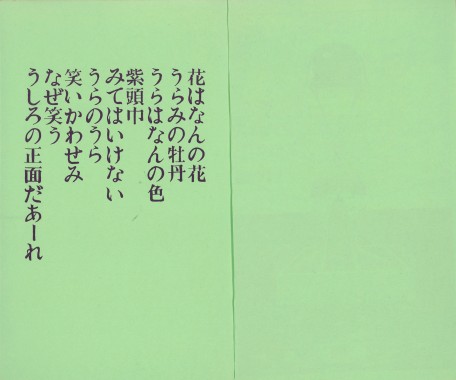 花はなんの花
うらみの牡丹
うらはなんの色
紫頭巾
みてはいけない
うらのうら
笑いかわせみ
なぜ笑う
うしろの正面だあーれ